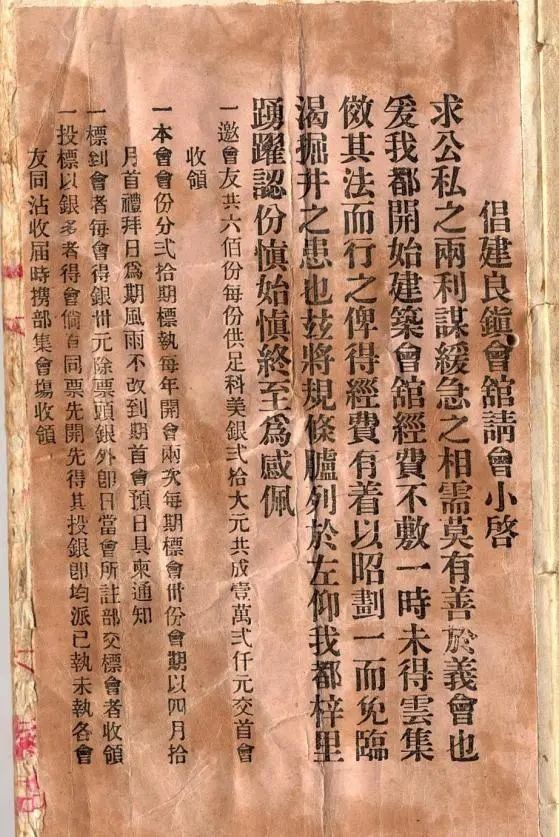 倡建良鎭會舘請會小啓
求公私之兩利謀緩急之相需莫有善於義會也
爰我都開始建築會舘經費不敷一時未得雲集
倣其法而行之俾得經費有着以昭劃一而免臨
渴掘井之患也玆將規條臚列於左仰我都梓里
踴躍認份愼始愼終至爲感佩
一邀會友共六佰份每份供足科美銀弍拾大元共成壹萬弍仟元交首會
收領
一本會會份分弍拾期標執每年開會兩次每期標會卅份會期以四月拾
月首禮拜日爲期風雨不改到期首會預日具柬通知
一標到會者每會得銀卅元除票頭銀外卽日當會所註部交標會者收領
一投標以銀多者得會倘有同票先開先得其投銀卽均派已執未執各會
友同沾收届時携部集會塲收領